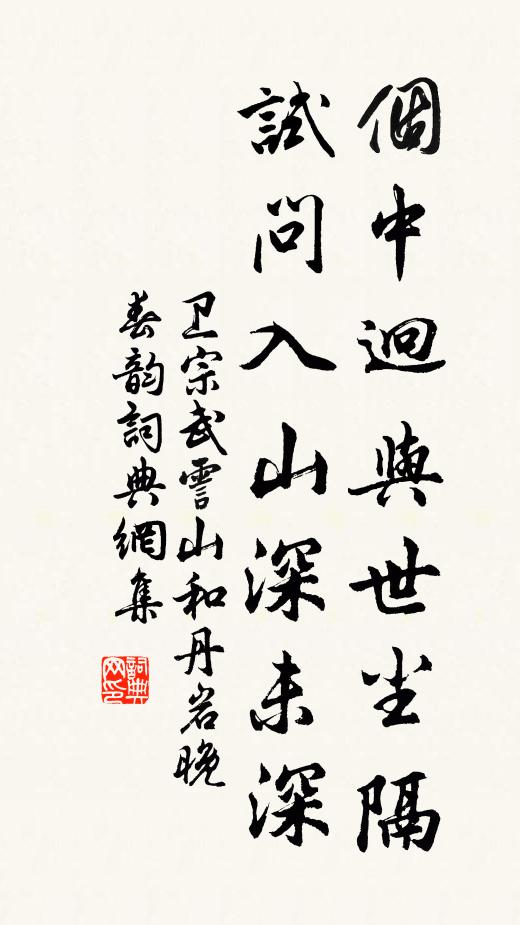 個中逈與世尘隔
試問入山深未深
卫宗武霅山和丹岩晚
春韵詞典網集
詞典
网印